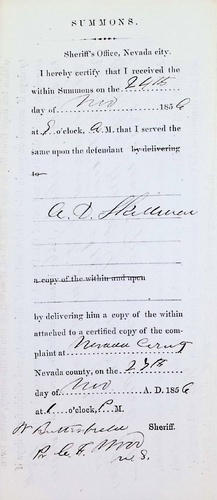 SUMMONS.
Sheriff's Office, Nevada city.
I hereby certify that I received the
within Summons on the 26th
day of Nov 1856
at 8 o'clock, A.M. that I served the
same upon the defendant by delivering
to
A. D. Skillman
a copy of the within and upon
by delivering him a copy of the within
attached to a certified copy of the com-
plaint at Nevada County
Nevada county, on the 27th
day of Nov A. D. 1856
at 1 o'clock, P.M.
W Butterfield Sheriff.